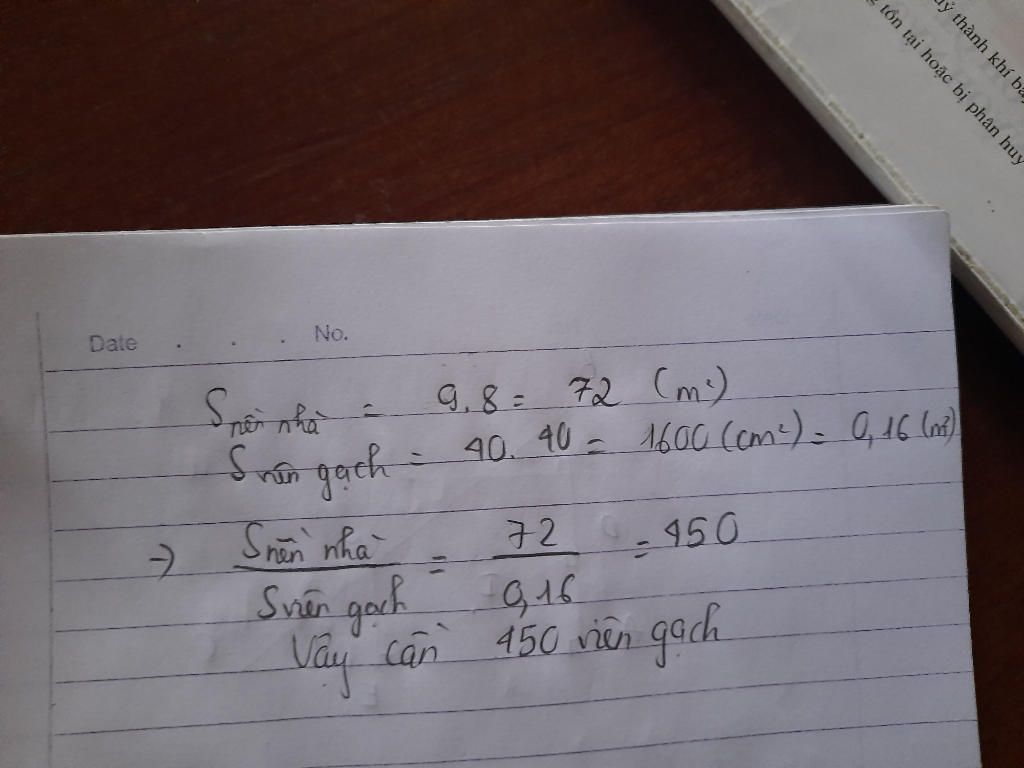 uỷ thành khí ba
g tồn tại hoặc bị phân huỷ
Date . . . No.
S nền nhà = 9.8 = 72 (m²)
S viên gạch = 40.40 = 1600 (cm²) = 0,16 (m²)
→ S nền nhà / S viên gạch = 72 / 0,16 = 450
Vậy cần 450 viên gạch